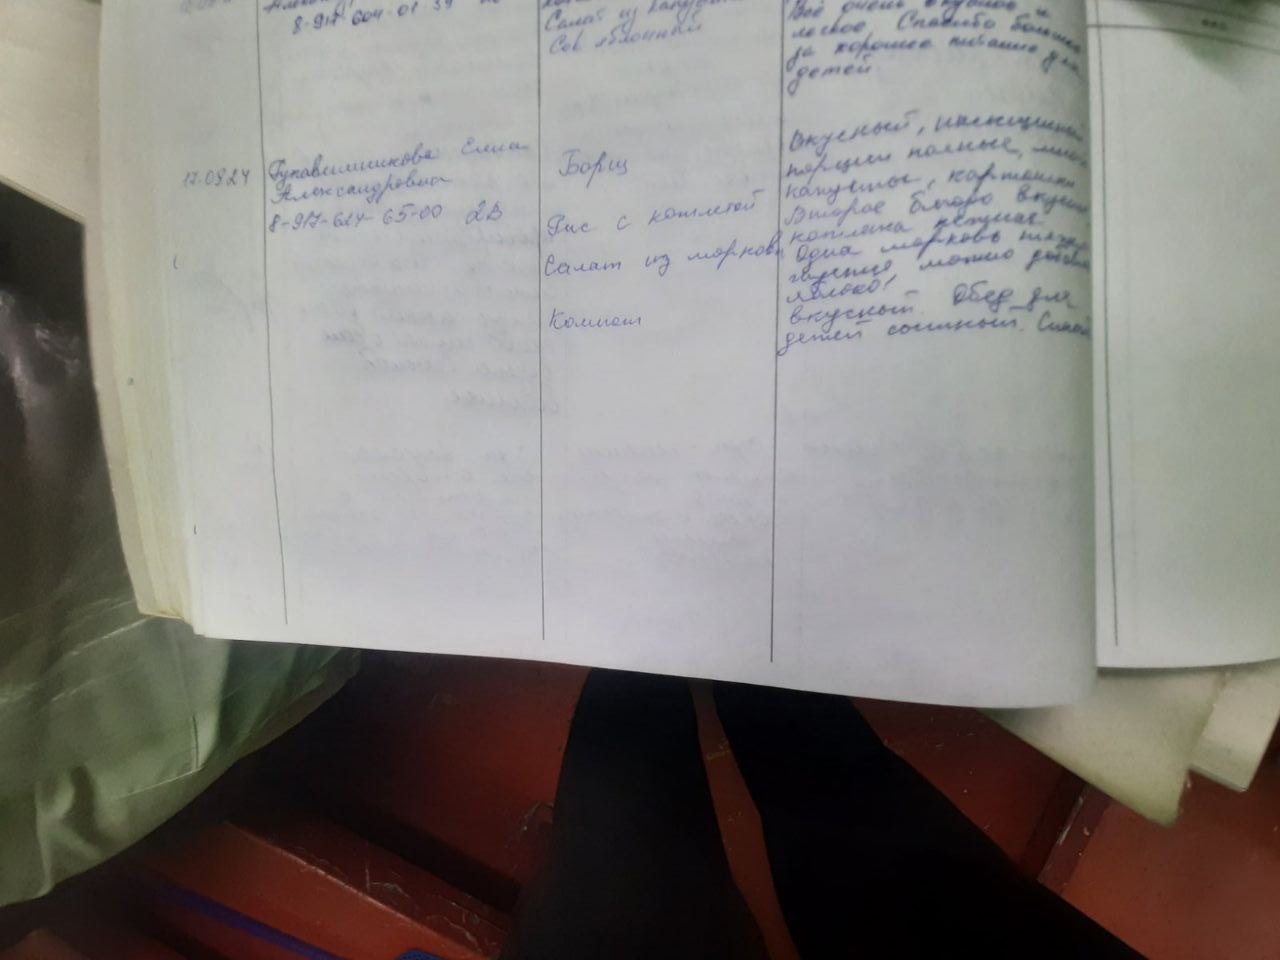 8-917-604-01 39
Салат из капусты
Сок яблочный
Всё очень вкусное и
Спасибо большое
за хорошее питание для
детей.
17.0924
Елена
Александровна
8-917-624-65-00 2В
Борщ
Рис с котлетой
Салат из моркови
Компот
Вкусный, насыщенный
порции полные, много
капусты, картошки
Второе блюдо вкусное
котлета
Одна морковь
можно добавить
яблоко!
вкусный - Обед для
детей сытный.